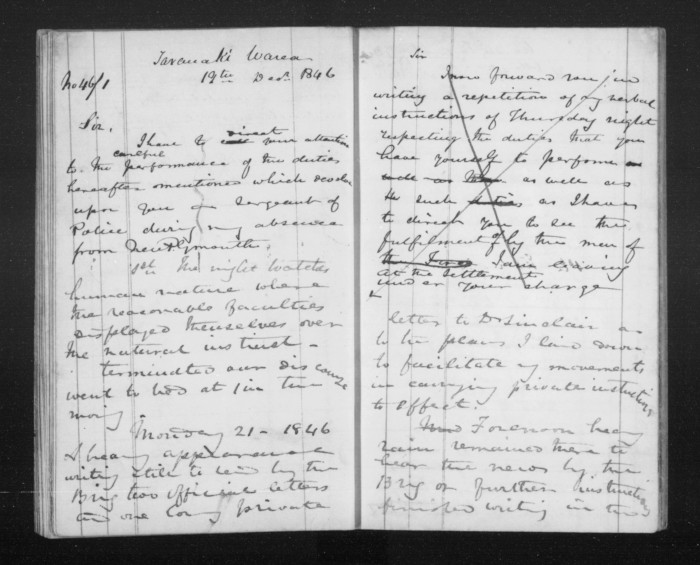 Taranaki Warea
19th Decr. 1846
No 46/1
Sir,
I have to direct your attention
to the careful performance of the duties
hereafter mentioned which devolve
upon you as Sergeant of
Police during my absence
from New Plymouth.
1st The night Watches
human nature when
the reasonable faculties
displayed themselves over
the natural instinct -
terminated our discourse
went to bed at 1 in the
morg
Monday 21 - 1846
A heavy appearance
writing still to send by the
Brig two official letters
and one long private
Sir
I now forward you in
writing a repetition of my verbal
instructions of Thursday night
respecting the duties that you
have yourself to perform
as well as
such duties as I have
to direct you to see the
fulfilment of by the men of
the Force I am leaving
at the Settlement
under your charge
letter to Dr Sinclair as
to the plans I laid down
to facilitate my movements
in carrying private instructions
to effect.
Forenoon heavy
rain remained there to
hear the news by the
Brig or further instructions
finished writing in the